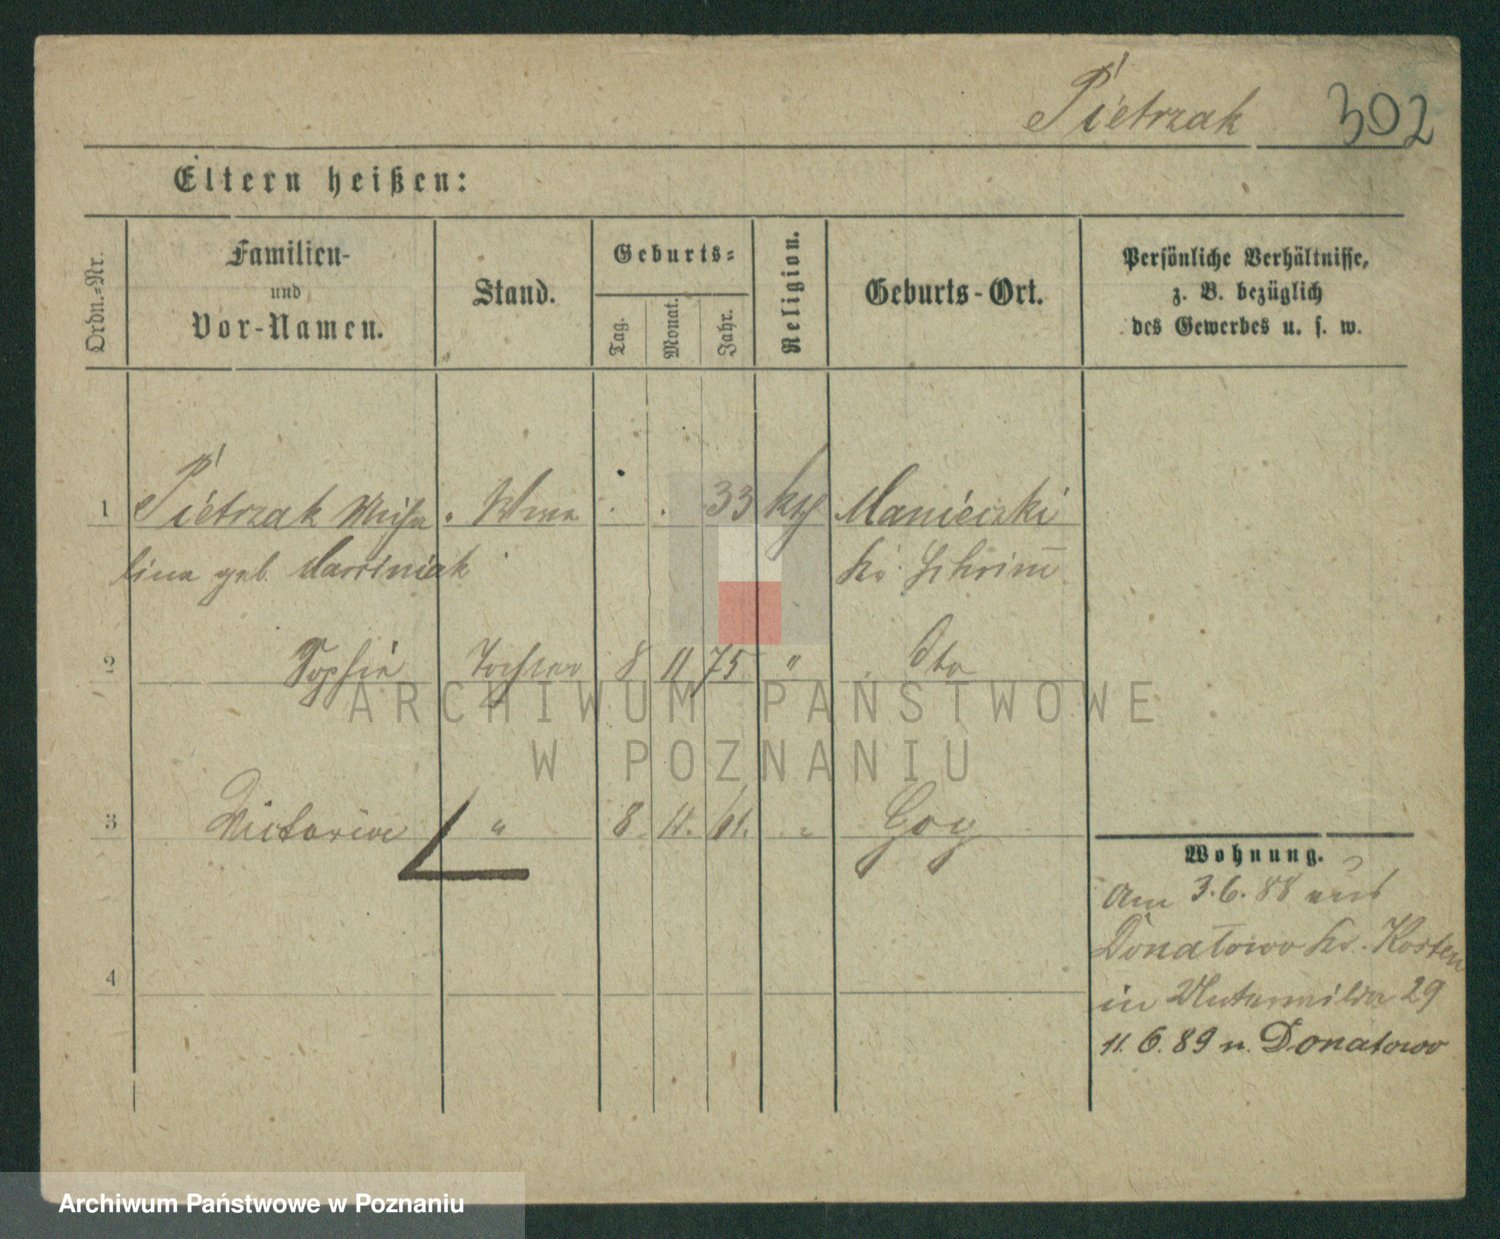 Pietrzak 302
Eltern heißen:
Ordn.-Nr.
Familien-
und
Vor-Namen.
Stand.
Geburts-
Tag.
Monat.
Jahr.
Religion.
Geburts-Ort.
Persönliche Verhältnisse,
z. B. bezüglich
des Gewerbes u. s. w.
1 Pietrzak Wwe 33 kth Manieczki
lina geb. Marciniak Kr. Schrim
2 Sophie Tochter 8 11 75 " dto
3 Victoria " 8. 11. 61. " Gog
4
Wohnung.
Am 3.6.88 aus
Donatowo Kr. Kosten
in 29
11. 6. 89 n. Donatowo
ARCHIWUM PAŃSTWOWE
W POZNANIU
Archiwum Państwowe w Poznaniu